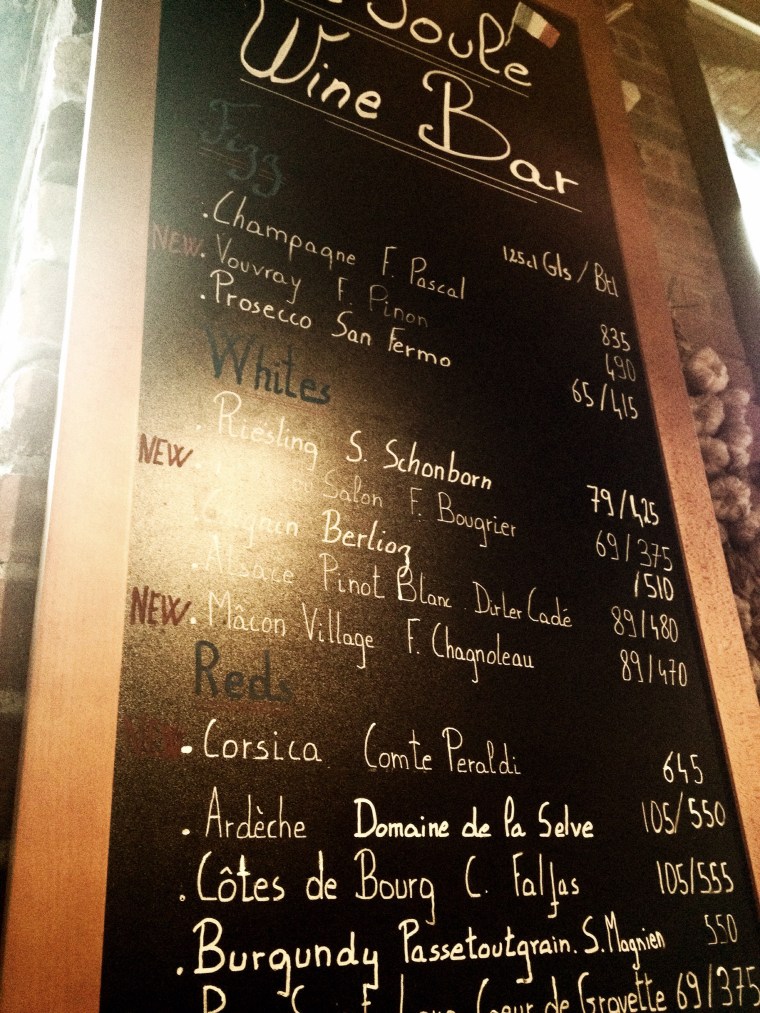 Soule
Wine Bar
Fizz
125cl Gls / Btl
. Champagne F. Pascal 835
NEW. Vouvray F. Pinon 490
. Prosecco San Fermo 65/415
Whites
. Riesling S. Schonborn 79/425
NEW. Salon F. Bougrier 69/375
Berlioz /510
. Alsace Pinot Blanc . Dirler Cadé 89/480
NEW. Mâcon Village F. Chagnoleau 89/470
Reds
. Corsica Comte Peraldi 645
. Ardèche Domaine de la Selve 105/550
. Côtes de Bourg C. Falfas 105/555
. Burgundy Passetoutgrain. S. Magnien 550
Coeur de Grovette 69/375